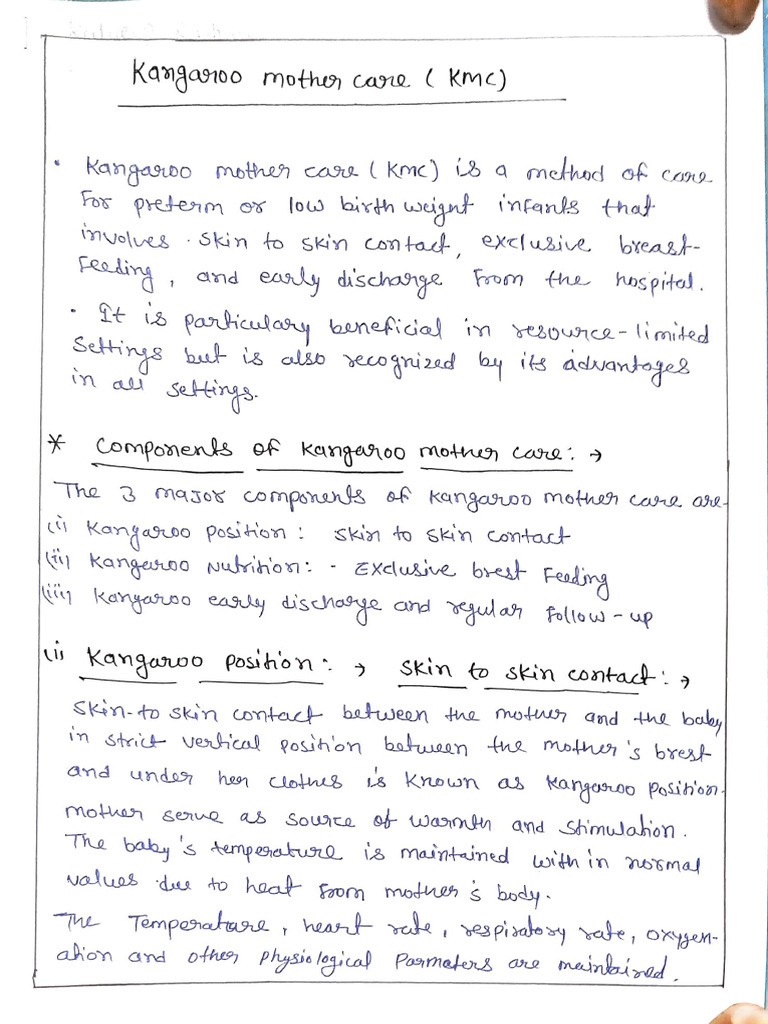 Kangaroo mother care (KMC)
• Kangaroo mother care (KMC) is a method of care
For preterm or low birth weight infants that
involves skin to skin contact, exclusive breast-
Feeding, and early discharge from the hospital.
• It is particulary beneficial in resource-limited
Settings but is also recognized by its advantages
in all settings.
* Components of Kangaroo mother care: →
The 3 major components of Kangaroo mother care are-
(i) Kangaroo position: skin to skin contact
(ii) Kangaroo Nutrition: - Exclusive brest Feeding
(iii) Kangaroo early discharge and regular follow-up
(i) Kangaroo position: → Skin to skin contact: →
Skin-to skin contact between the mother and the baby
in strict vertical position between the mother's brest
and under her clothes is known as Kangaroo position.
mother serve as source of warmth and stimulation.
The baby's temperature is maintained with in normal
values due to heat from mother's body.
The Temperature, heart rate, respiratory rate, oxygen-
ation and other physiological Parmaters are maintained.